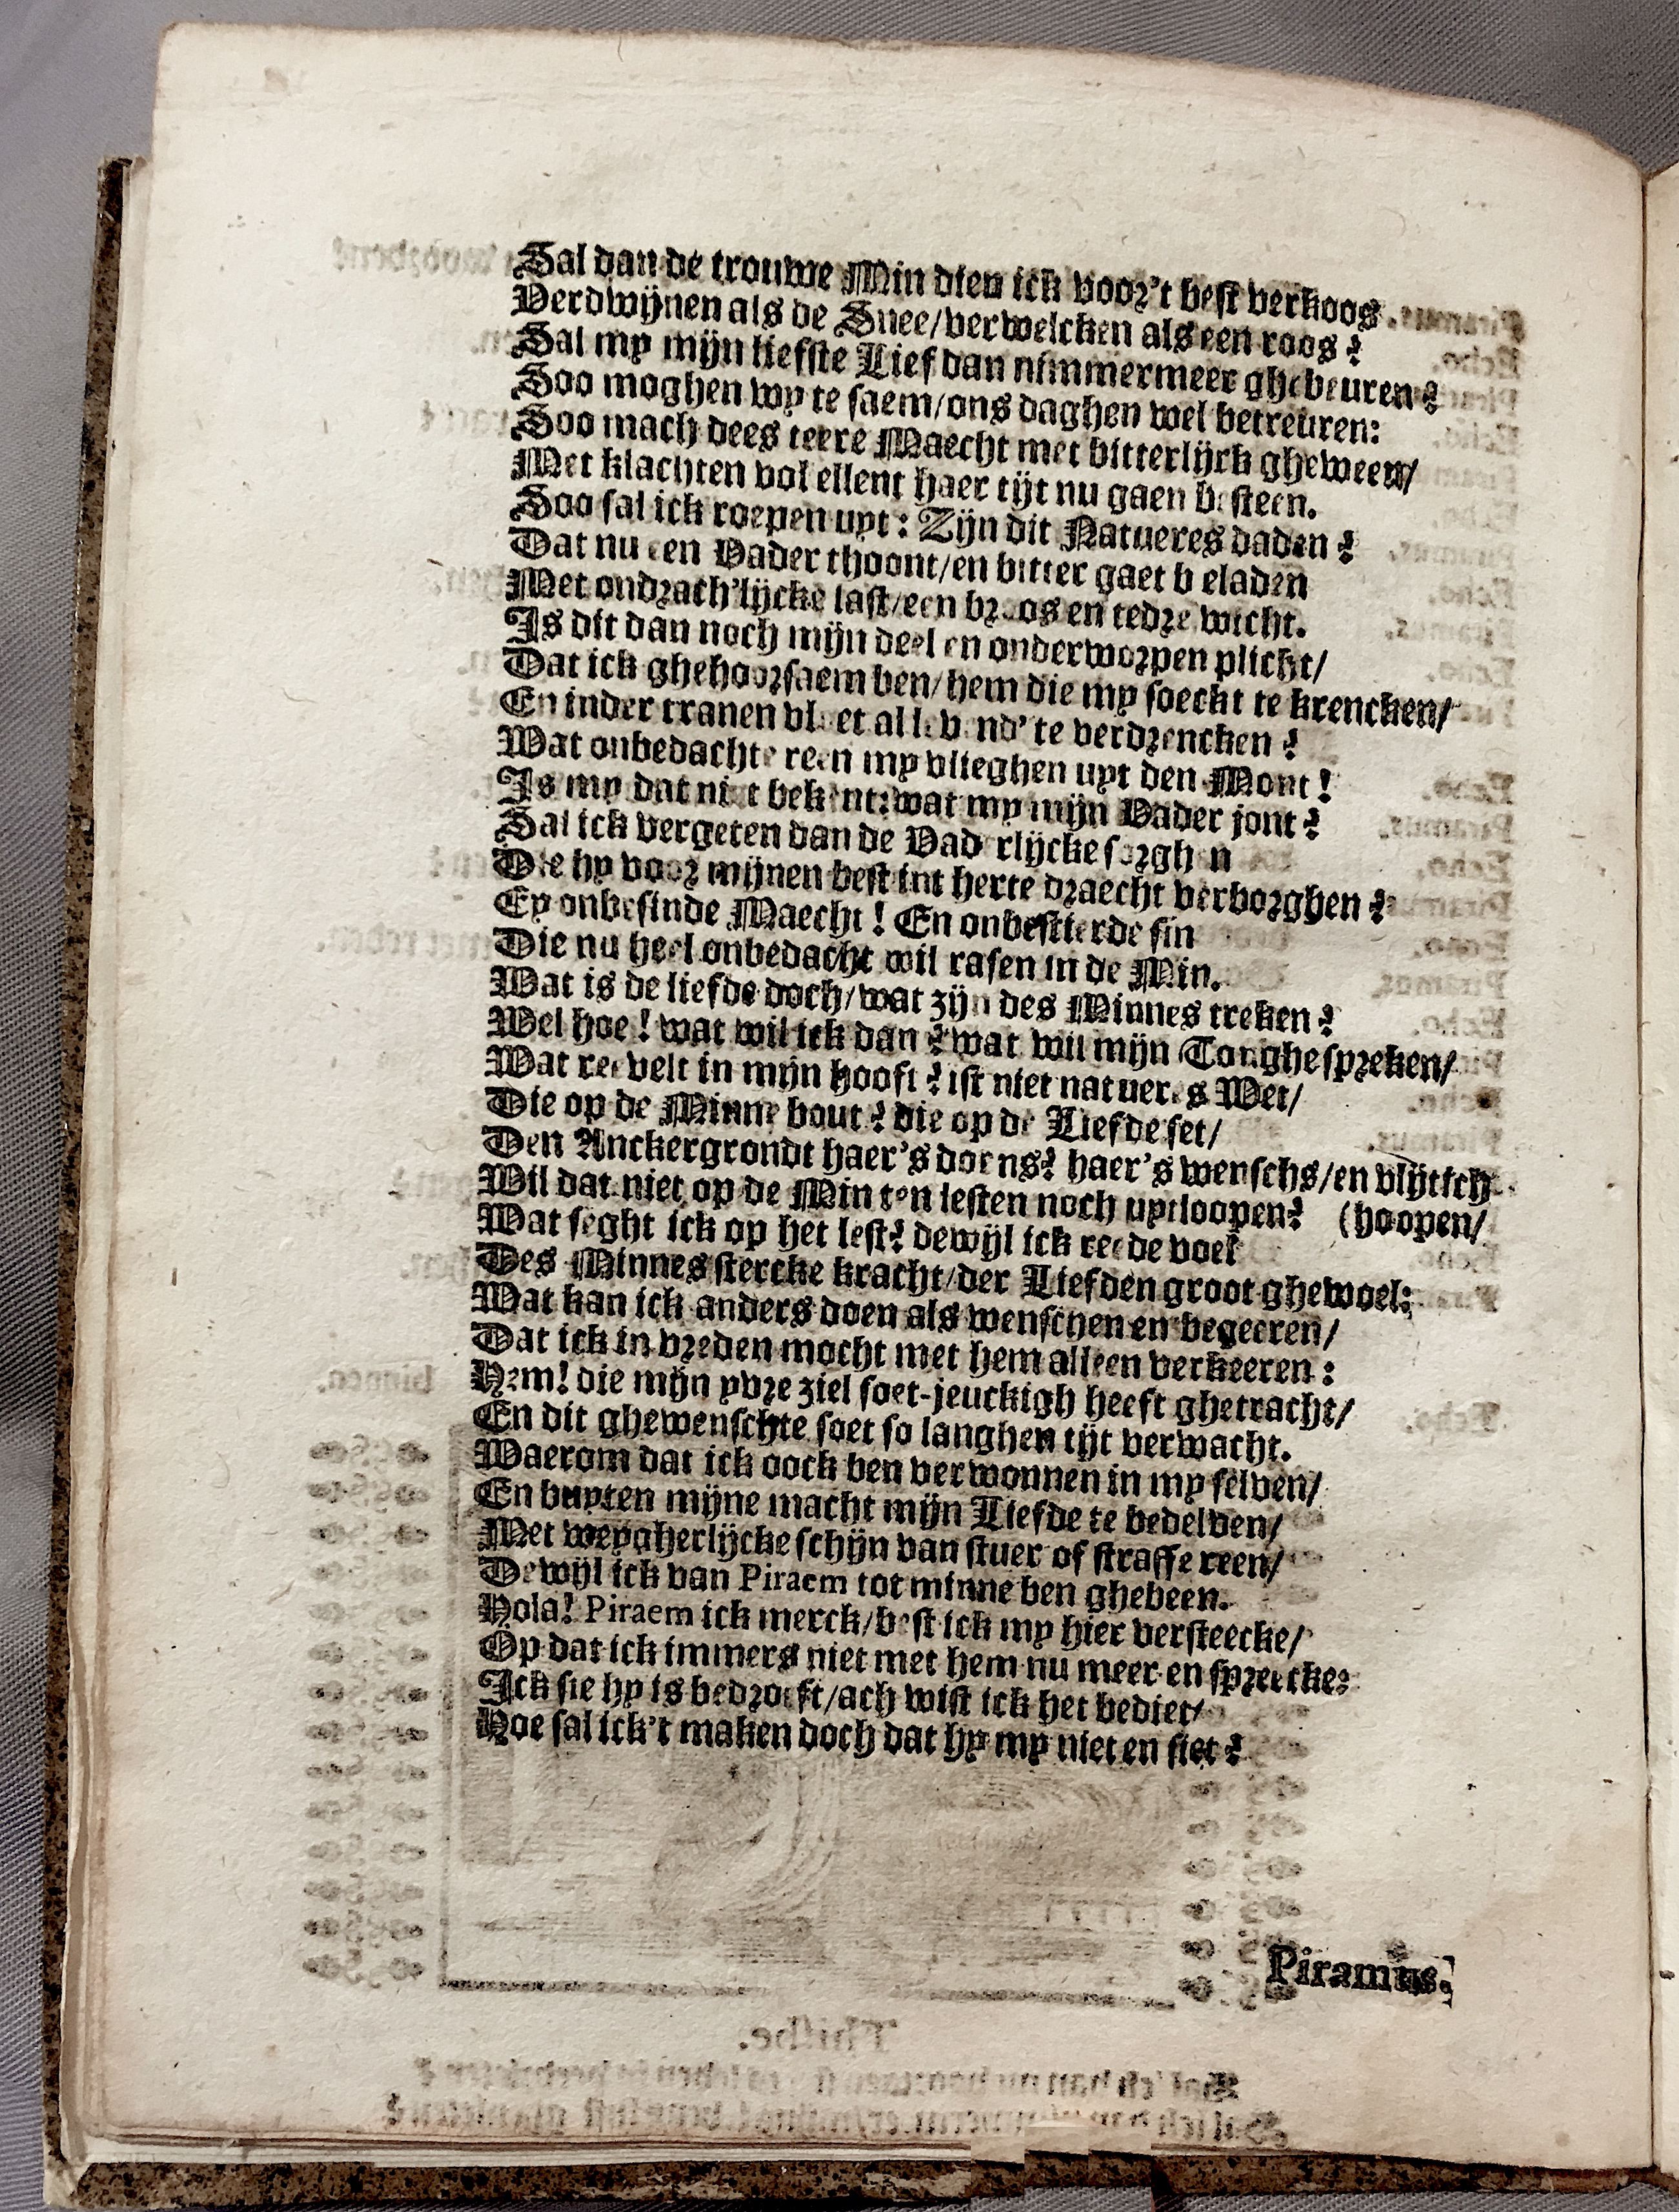 Sal dan de trouwe Min dien ick voor't best verkoos
Verdwijnen als de Snee/verwelcken als een roos?
Sal my mijn liefste Lief dan nimmermeer ghebeuren?
Soo moghen wy te saem/ons daghen wel betreuren:
Soo mach dees teere Maecht met bitterlijck gheween/
Met klachten vol ellent haer tijt nu gaen besteen.
Soo sal ick roepen uyt: Zijn dit Natueres daden?
Dat nu een Vader thoont/en bitter gaet beladen
Met ondrach'lijcke last/een broos en tedre wicht.
Is dit dan noch mijn deel en onderworpen plicht/
Dat ick ghehoorsaem ben/hem die my soeckt te krencken/
En inder tranen vloet al levend' te verdrencken?
Wat onbedachte reen my vlieghen uyt den Mont!
Is my dat niet bekent: wat my mijn Vader jont?
Sal ick vergeten dan de Vaderlijcke sorghen
Die hy voor mijnen best int herte draecht verborghen?
Ey onbesinde Maecht! En onbestierde sin
Die nu heel onbedacht wil rasen in de Min.
Wat is de liefde doch/wat zijn des Minnes treken?
Wel hoe! wat wil ick dan? wat wil mijn Tonghe spreken/
Wat reevelt in mijn hooft? ist niet natueres Wet/
Die op de Minne bout? die op de Liefde set/
Den Anckergrondt haer's doens? haer's wenschs/en vlijtich
Wil dat niet op de Min ten lesten noch uytloopen? (hoopen/
Wat seght ick op het lest? dewijl ick reede voel
Des Minnes stercke kracht/der Liefden groot ghewoel:
Wat kan ick anders doen als wenschen en begeeren/
Dat ick in vreden mocht met hem alleen verkeeren:
Hem! die mijn yvre ziel soet-jeuckigh heeft ghetracht/
En dit ghewenschte soet so langhen tijt verwacht.
Waerom dat ick oock ben verwonnen in my selven/
En buyten mijne macht mijn Liefde te bedelven/
Met weygherlijcke schijn van stuer of straffe reen/
Dewijl ick van Piraem tot minne ben ghebeen.
Hola! Piraem ick merck/best ick my hier versteecke/
Op dat ick immers niet met hem nu meer en spreecke:
Ick sie hy is bedroeft/ach wist ick het bediet/
Hoe sal ick't maken doch dat hy my niet en siet?
Piramus.